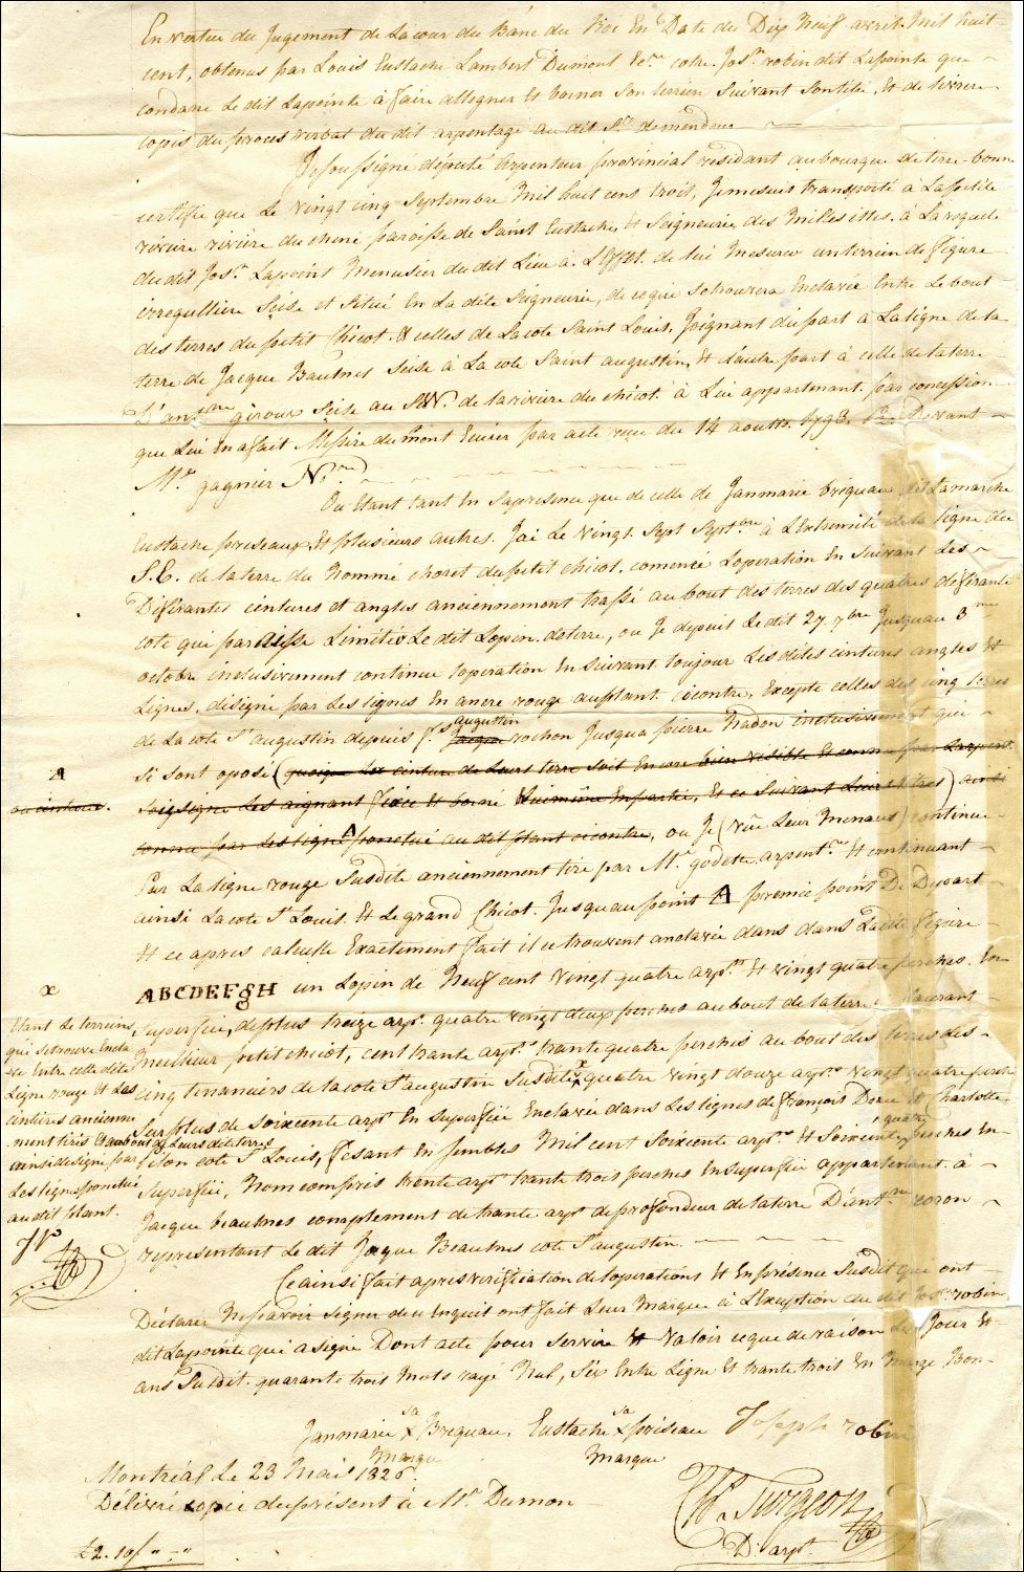 En vertue du Jugement de La cour du Banc du Roi En Date du Dix Neuf avril Mil huit
cent, obtenus par Louis Eustache Lambert Dumont Ecr. cotre Josh. robin dit Lapointe que
condane Le dit Lapointe à faire allegner Et borner Son terrein Suivant Sontitie, Et de livrere
copie du proces verbal du dit arpentage au dit Sr. demendeur
Je soussigné député Arpenteur provincial residant aubourque deterre-bonne
certifie que Le vingt cinq Septembre Mil huit cent trois, Jemesuis transporté à Lapetite
riviere riviere du chene paroisse de Saint Eustache, Et Seigneurie des Milles isles. à La requete
du dit Josh. Lapoint Menusier du dit Lieu à L'Effet de lui Mesurer un terrein de figure
irregulliere Sise et Situé En La dite Seigneurie, de ce qui setrouvera Enclavée Entre Le bout
des terres du petit Chicot & celles de La cote Saint Louis, Joignant du part à La ligne de la
terre de Jacque Bautnes Seise à La cote Saint augustin, Et d'autre part à celle de laterre
d'ant. ne giroux Seise au SW. de lariviere du chicot. à Lui appartenant par concession
que Lui En a fait Messire du mont Ecuier par acte reçu du 14 aoutts. 1798. P. Devant
Mr. gagnier N.re
Ou Etant tant En Sapresence que de celle de Janmarie briquau dit Lamarche
Eustache preseaux, Et plusieurs autres. J'ai Le Vingt Sept Septbre à L'Extremité de la ligne du
S.E. de laterre du Nommé choret dupetit chicot, comencé Loperation En Suivant Les
Diferantes ceintures et angles anciennement trassé au bout des terres des quatres diferante
cote qui paraisse Limitée Le dit Lopin deterre, ou Je depuis Le dit 27 7bre Jusquau 3me
octobre inclusivement continue loperation En Suivant toujour Les dites cintures angles Et
Lignes, désigné par Les lignes En ancre rouge auplant cicontre, Excepte celles des cinq terres
augustin
de La cote St augustin depuis Jacque rochon Jusqua pierre Nadon inclusivement qui
A
Si sont oposé (quoique Les cinture de Leurs terre soit Encore bien visible Et comme par Larpent.
ou cinteure.
Soussigne Les aignant fixee Et borné Luimême Enpartie, Et ce Suivant Leurs titres) ainsi
comme par Les ligne A ponctué au dit plant cicontre, ou Je (vûe Leur Menace) continue
Par La ligne rouge Susdite anciennement tiré par Mr. godette arpentr. Et continuant
ainsi La cote St Louis. Et Legrand Chicot. Jusquau point A premié point De Depart
Et ce apres calculle Exactement fait il ce trouvent anclavée dans dans Ladte figuire
ABCDEFGH un Lopin de Neuf cent vingt quatre arpts. Et vingt quatre perches. En
x
Etant Le terreins,
qui setrouve Encla-
vé Entre cette dite
Ligne rouge Et Les
cintures ancienne-
ment tirés Et au bout de Leurs dite terres
ainsi designé par
Les lignes ponctué
au dit plant.
JR
Superfeie, deplus treize arpt. quatre vengt deux perches au bout de laterre Laurant
meilleur petit chicot, cent trante arpts. trante quatre perches au bout des terres des
cinq tenanciers de la cote St augustin Susdite x quatre vengt douze arpts. vengt quatre perche
Surplus de Soixcente arpt En Superfeie Enclavée dans Les lignes de françois Doriu et Charlotte
quatre
filon cote St Louis, fesant Ensembles Mil cent Soixcente arpts. Et Soixcente, perches En
Superfeii, Noncompris trente arpt trante trois perches En superfeii appartenant à
Jacque beautnes complement de trante arpt de profondeur de laterre D'ant. ne coron
representant Le dit Jaque Beautnes cote St augustin.
Ceainsi fait apres verification de loperations Et En présence Susdit que ont
Déclarée Ne savoir Signer de ce Enquit ont fait Leur Marque à L'Exeption du dit Josh. robin
dit Lapointe qui a signé Dont acte pour servire Et Valoir ceque de raison les Jour Et
ans Susdit quarante trois Mots rayé Nul, Six Entre Ligne Et trante trois En Marge Bon
Janmarie sa x Marque Brequau. Eustache sa x Marque preseau Joseph robin
Montréal Le 23 Mai 1826.
Délivré copie duprésent à Mr. Dumon
Ch. Turgeon
D. arpt.
£2.10/ " - "